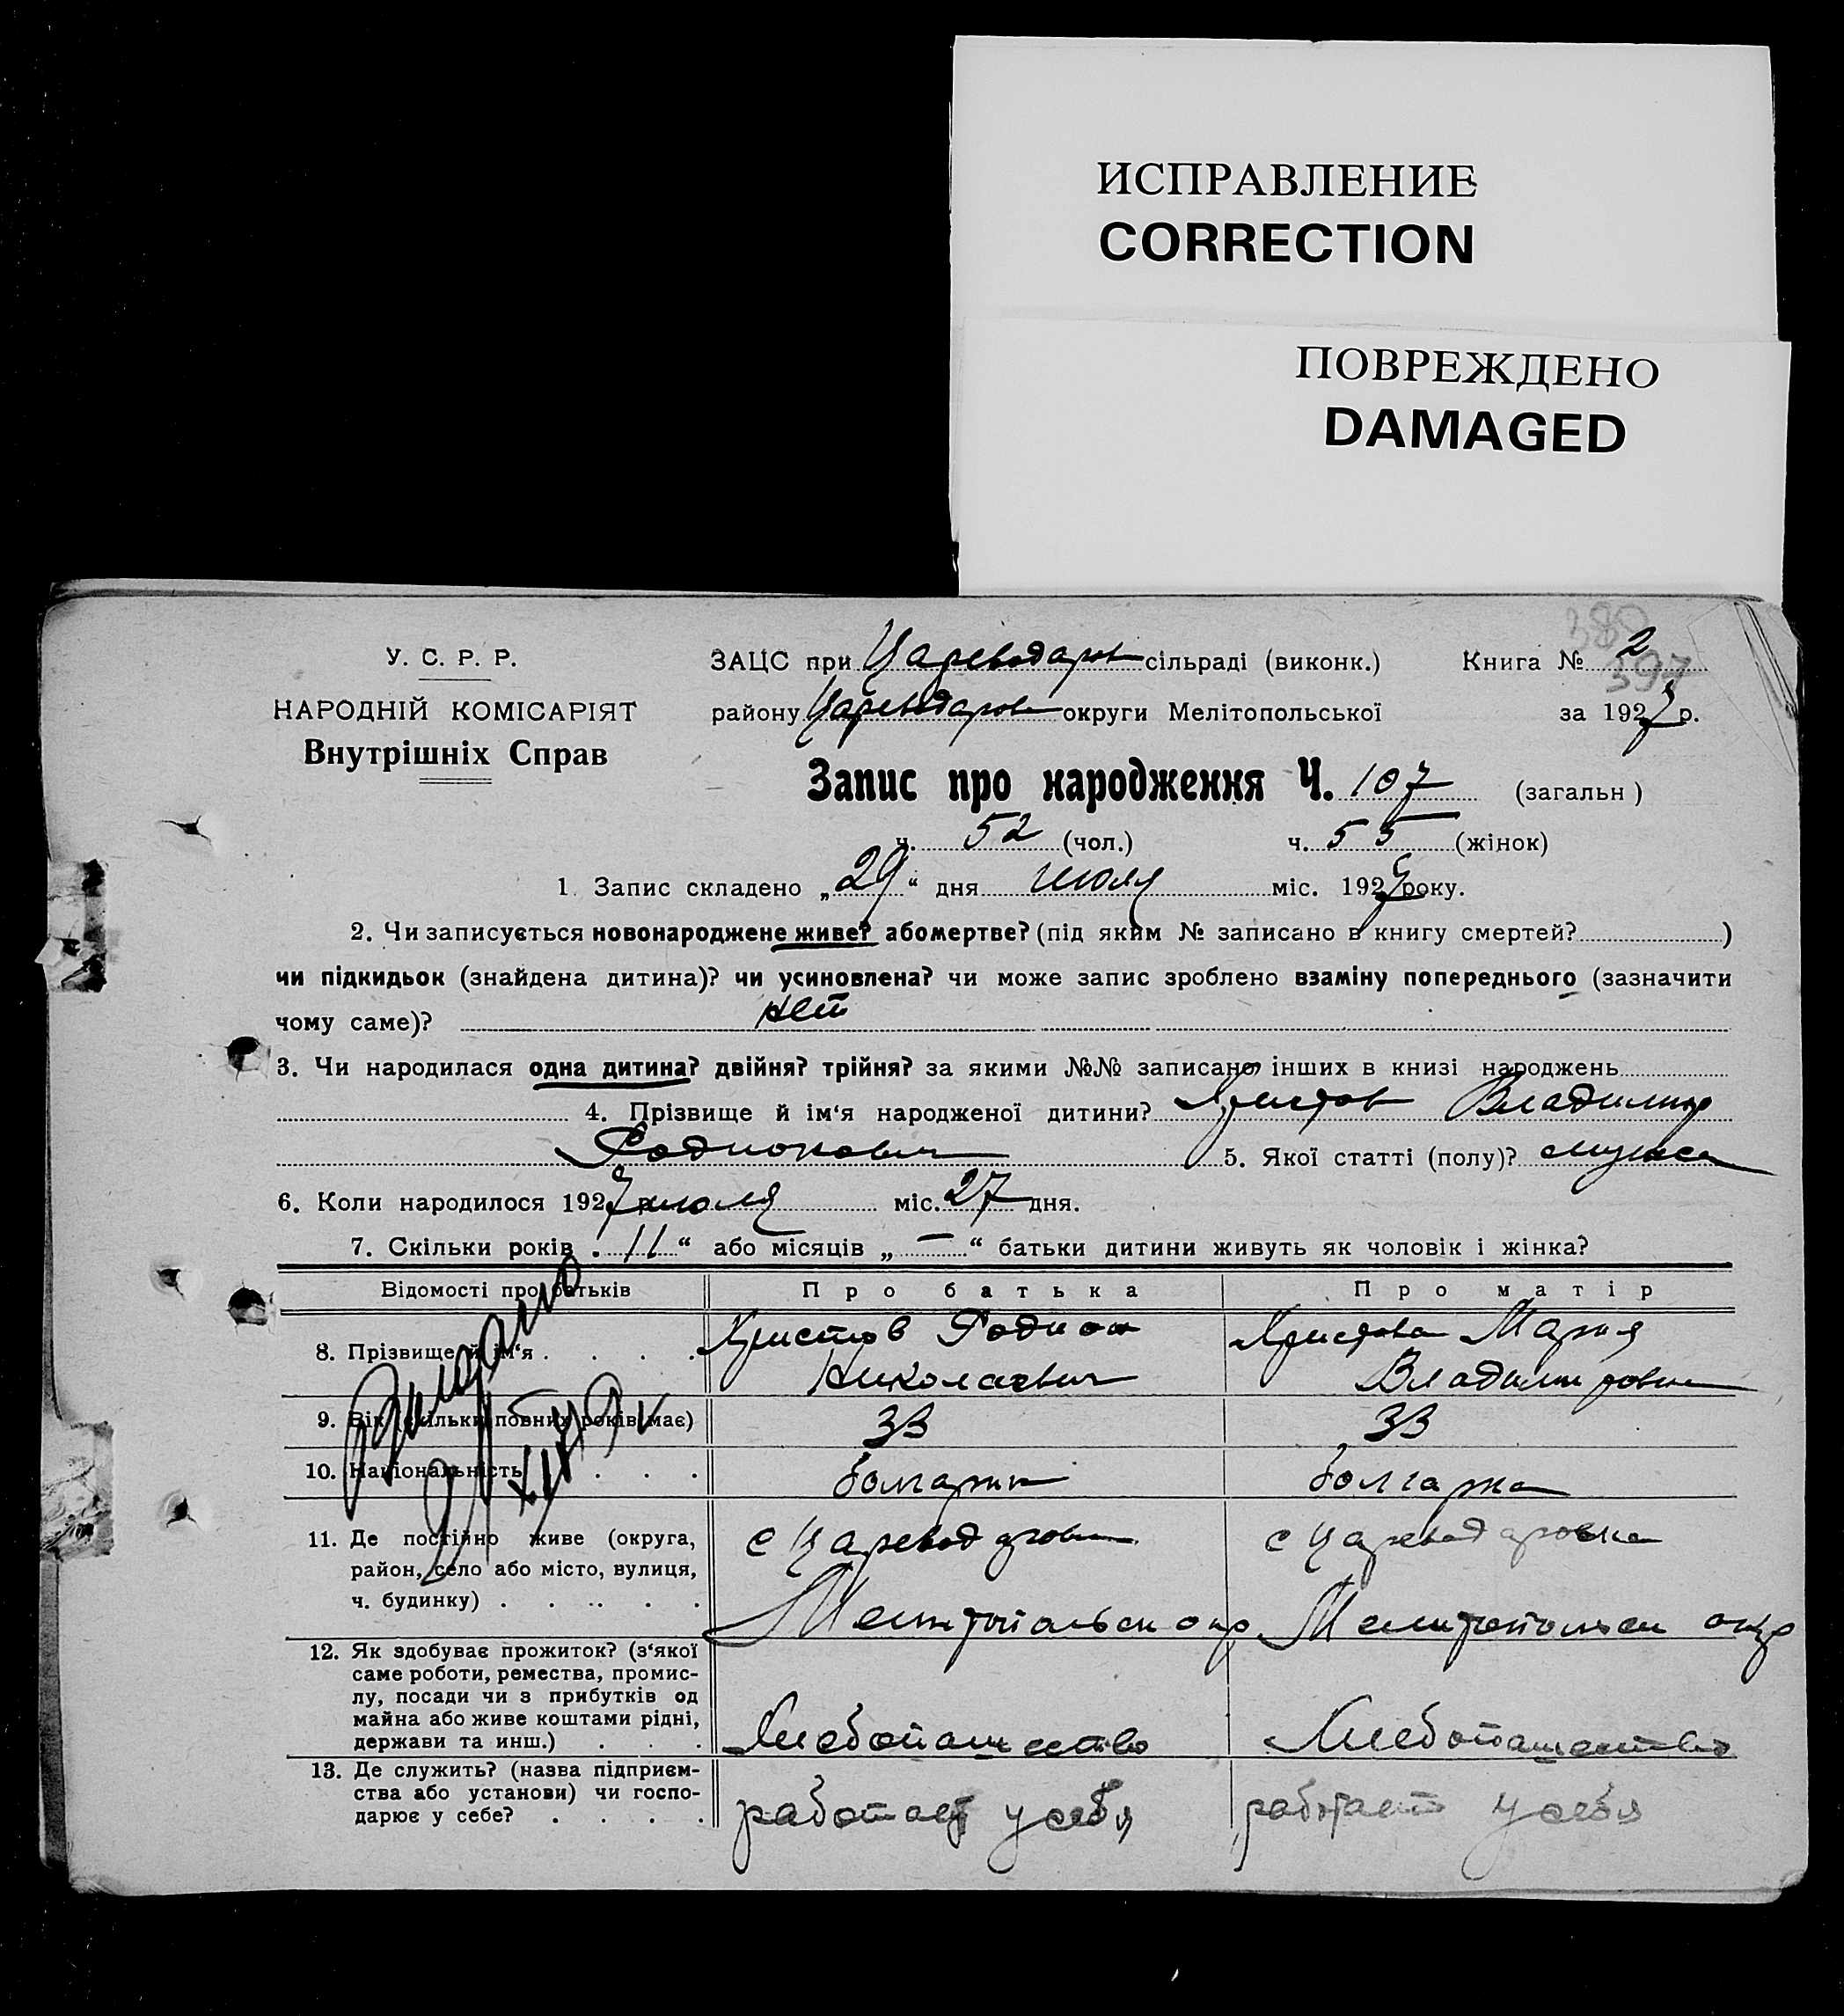 ИСПРАВЛЕНИЕ
CORRECTION
ПОВРЕЖДЕНО
DAMAGED
У. С. Р. Р.
НАРОДНІЙ КОМІСАРІЯТ
Внутрішніх Справ
380
397
ЗАЦС при Цареводаров сільраді (виконк.) Книга № 2
району Цареводаров округи Мелітопольської за 1927 р.
Запис про народження Ч. 107 (загальн)
ч. 52 (чол.) ч. 55 (жінок)
1. Запис складено „29“ дня июля міс. 1927 року.
2. Чи записується новонароджене живе? або мертве? (під яким № записано в книгу смертей? )
чи підкидьок (знайдена дитина)? чи усиновлена? чи може запис зроблено взаміну попереднього (зазначити
чому саме)? нет
3. Чи народилася одна дитина? двійня? трійня? за якими №№ записано інших в книзі народжень
4. Прізвище й ім‘я народженої дитини? Христов Владимир
Родионович 5. Якої статті (полу)? мужск
6. Коли народилося 1927 июля міс. 27 дня.
7. Скільки років „11“ або місяців „—“ батьки дитини живуть як чоловік і жінка?
Відомості про батьків Про батька Про матір
8. Прізвище й ім‘я . . . . Христов Родион Николаевич Христова Мария Владимировна
9. Вік (скільки повних років має) 33 33
10. Національність . . . болгарин болгарка
11. Де постійно живе (округа,
район, село або місто, вулиця,
ч. будинку) . . . . .
с Цареводаровка
Мелитопольск окр
с Цареводаровка
Мелитопольск окр
12. Як здобуває прожиток? (з‘якої
саме роботи, ремества, промис-
лу, посади чи з прибутків од
майна або живе коштами рідні,
держави та инш.) . . .
Хлебопашество Хлебопашество
13. Де служить? (назва підприєм-
ства або установи) чи госпо-
дарює у себе? . . . .
работает у себя работает у себя
Видано